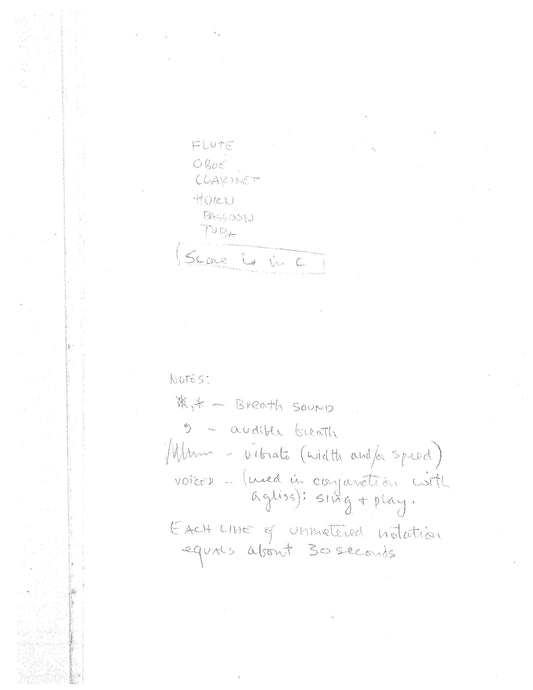 FLUTE
OBOE
CLARINET
HORN
BASSOON
TUBA
Score is in C
NOTES:
*,+ – Breath SOUND
, – audible breath
– vibrato (width and/or speed)
VOICED – (used in conjunction with
a gliss): sing + play.
EACH LINE of unmetered notation
equals about 30 seconds